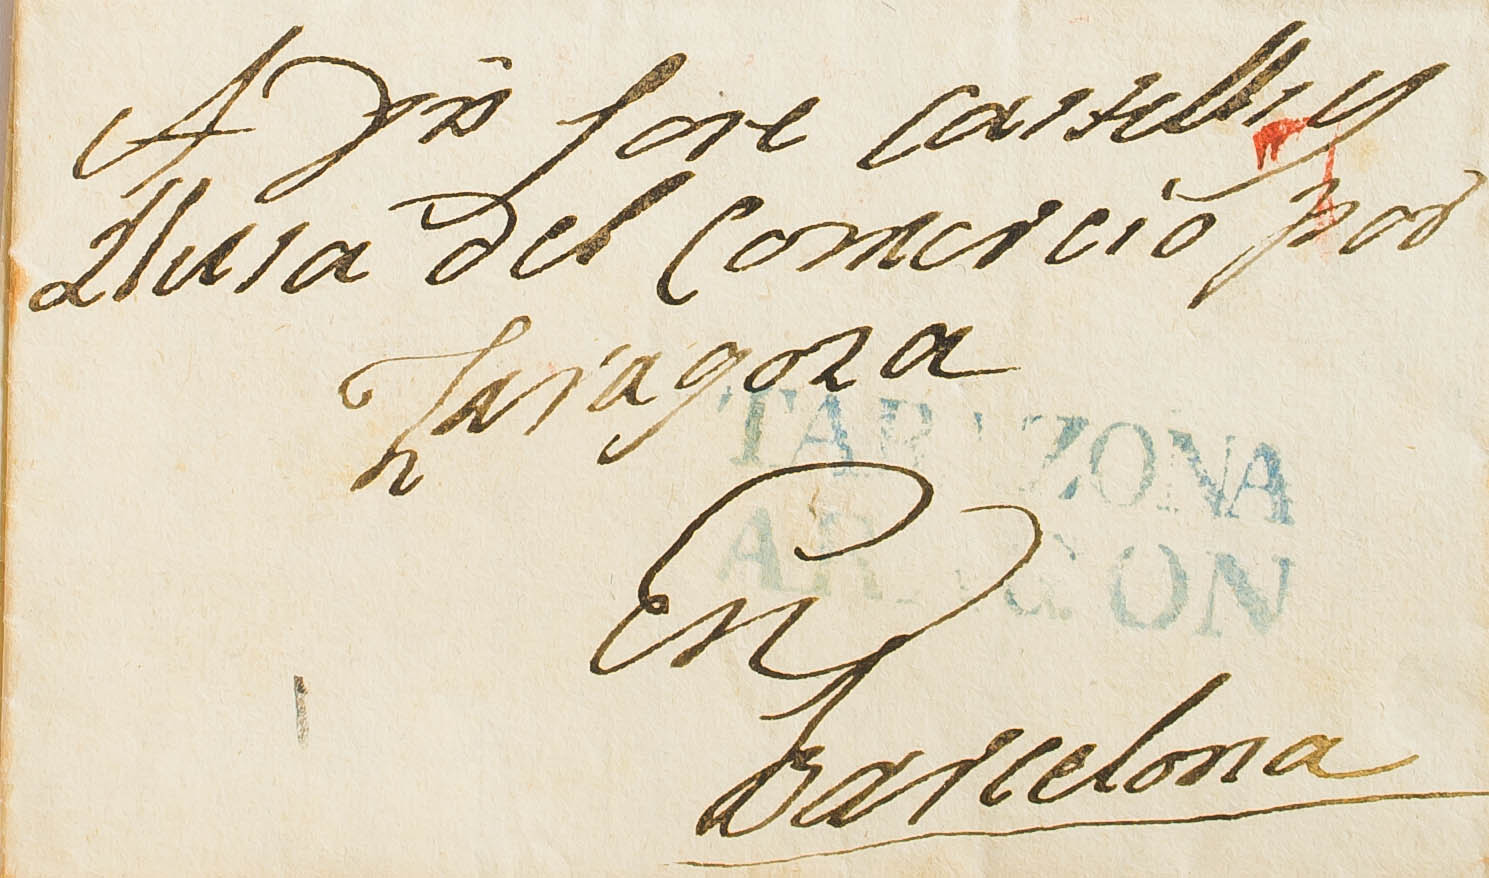 A Dn Jose Castells y
Llusa del Comercio por
Zaragoza
TARAZONA
ARAGON
En
Barcelona